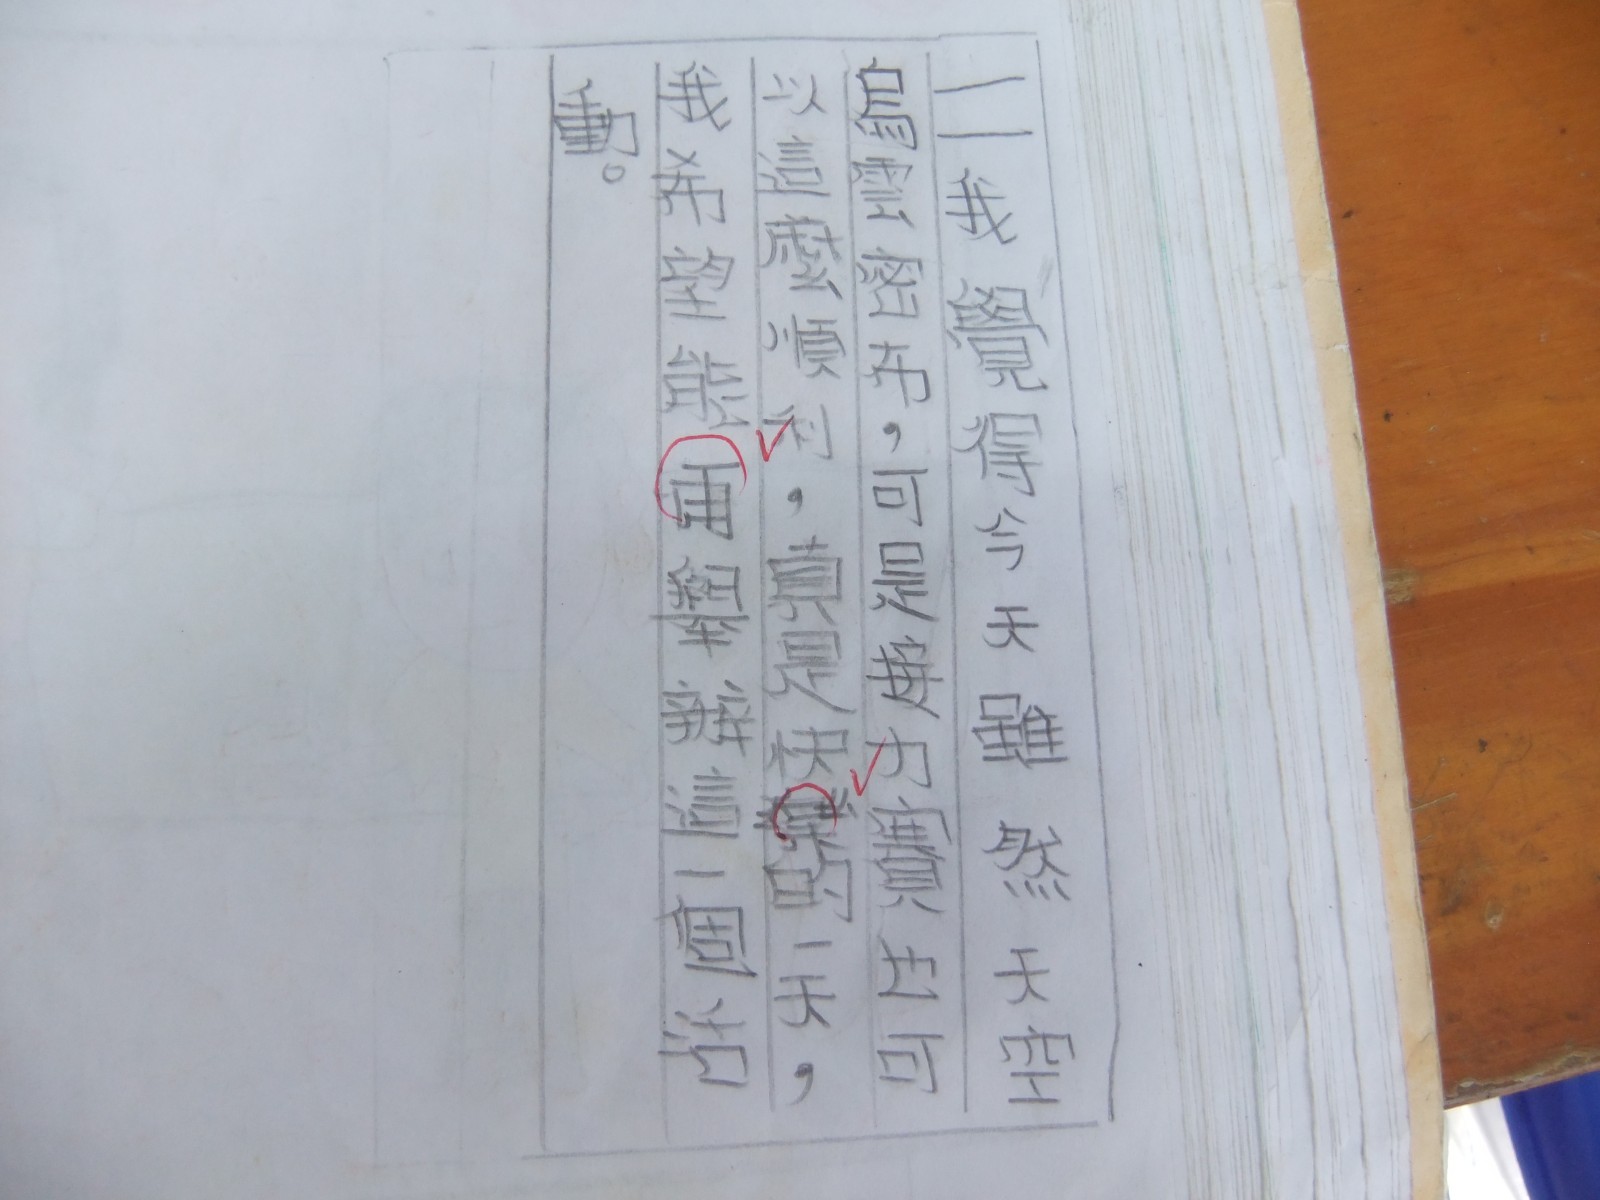 二我覺得今天雖然天空
烏雲密布，可是每賽去可
以這麼順利，真是快樂的一天，
我希望能再舉辦這一個活
動。